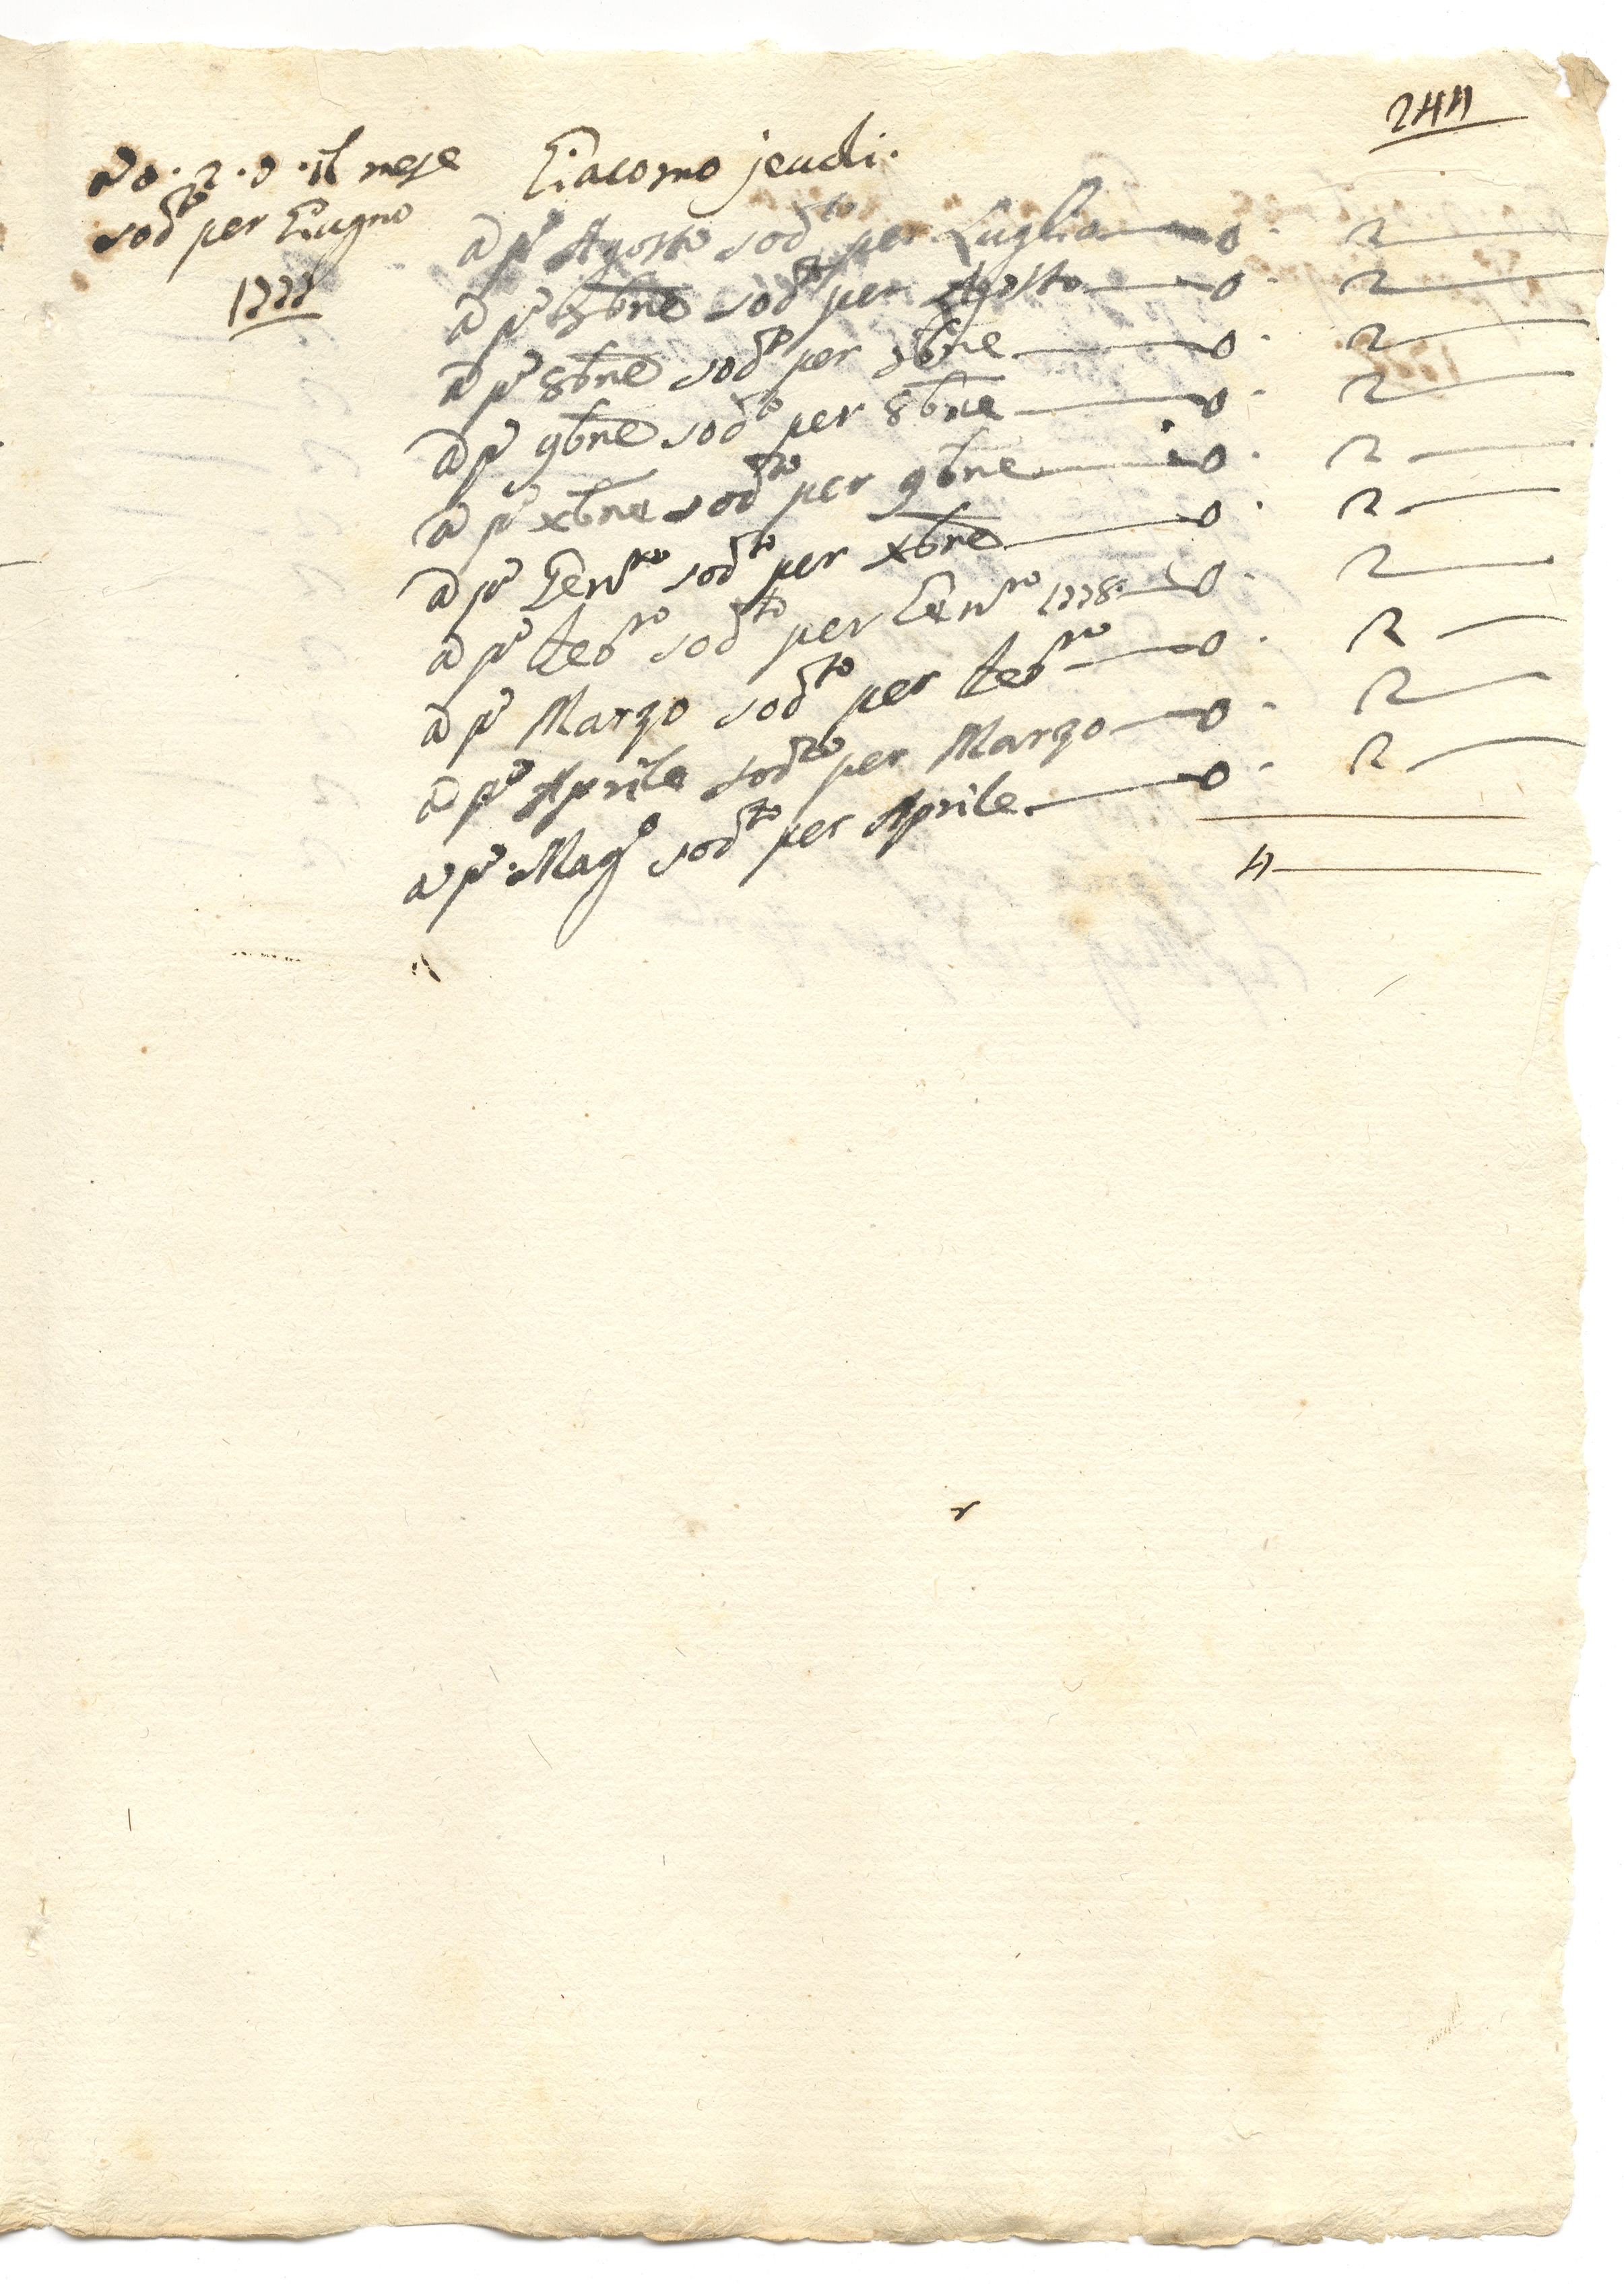 244
a 0·2·0·il mese
sod.to per Giugno
1777
Giacomo jeudi.
a p.º Agosto sod.to per Luglio — 0· 2 —
a p.º 7bre sod.to per Agosto — 0· 2 —
a p.º 8bre sod.to per 7bre — 0· 2 —
a p.º 9bre sod.to per 8bre — 0· 2 —
a p.º xbre sod.to per 9bre — 0· 2 —
a p.º Genn.ro sod.to per xbre — 0· 2 —
a p.º Feb.ro sod.to per Genn.ro 1778 — 0· 2 —
a p.º Marzo sod.to per Feb.ro — 0· 2 —
a p.º Aprile sod.to per Marzo — 0· 2 —
a p.º Mag.º sod.to per Aprile — 0· 2 —
4 —